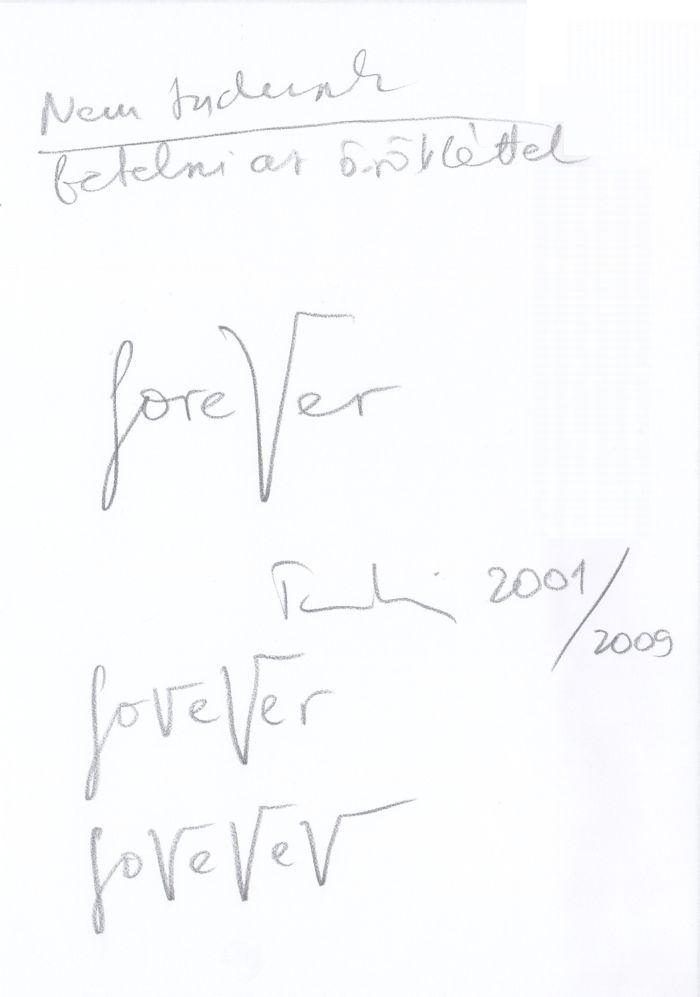 Nem tudunk
betelni az öröKléttel
foreVer
2001/
2009
foVeVer
foVeVeV